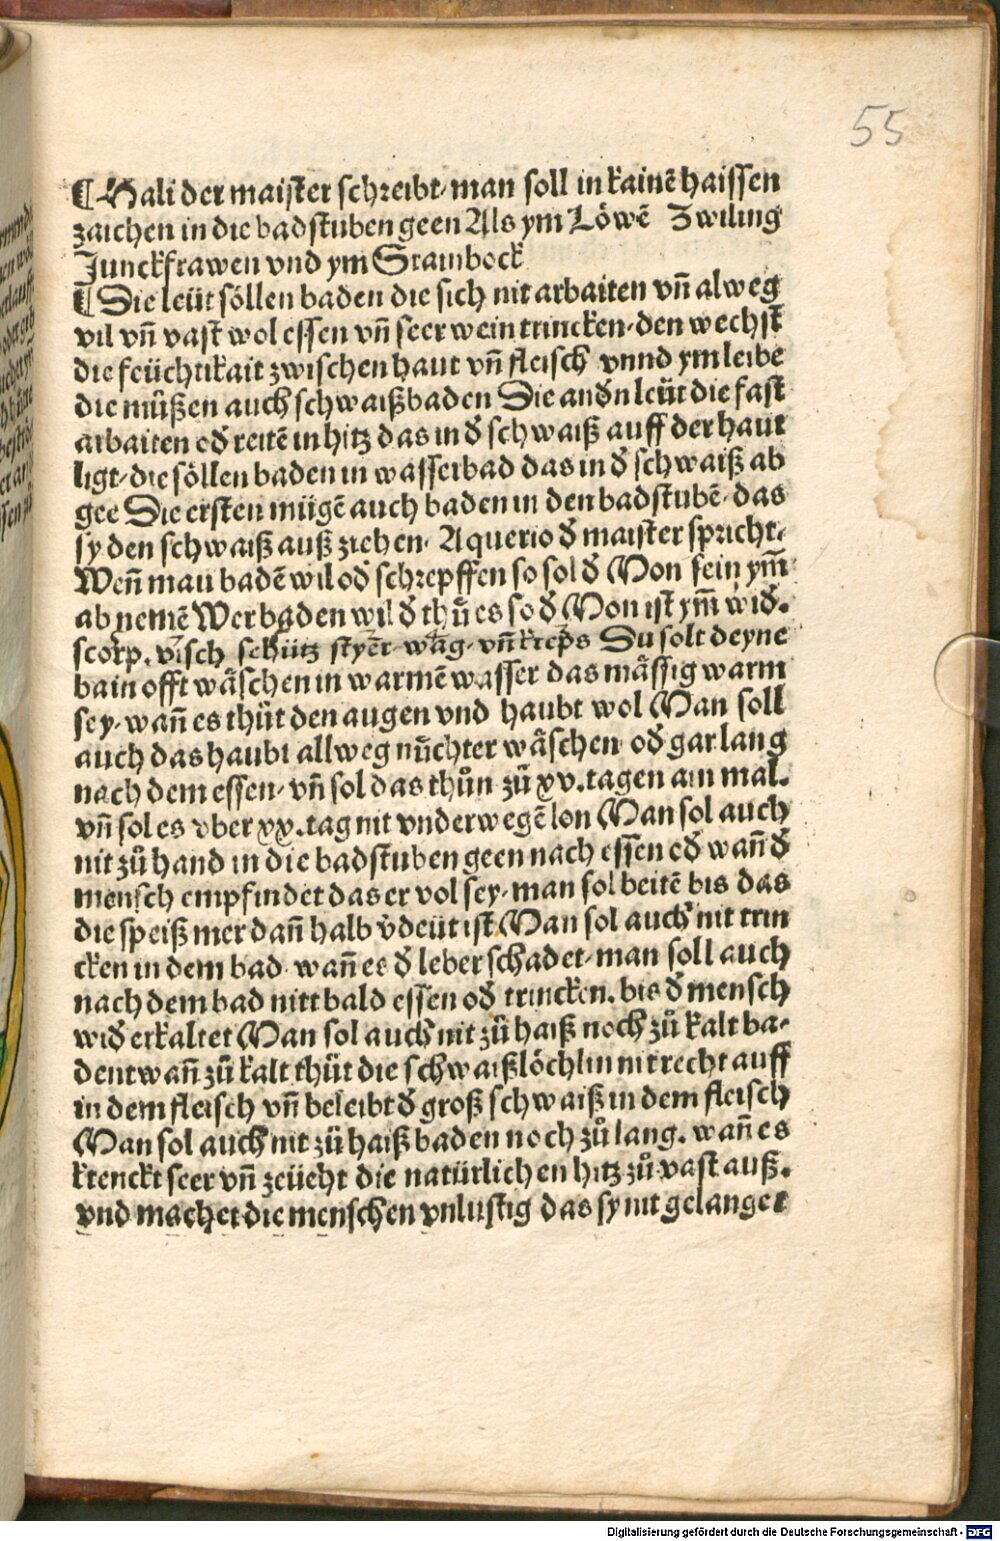 55
¶ Hali der maister schreibt· man soll in kainē haissen
zaichen in die badstuben geen Als ym Löwē Zwiling
Junckfrawen vnd ym Stainbock
¶ Die leüt söllen baden die sich nit arbaiten vn̄ alweg
vil vn̄ vast wol essen vn̄ seer wein trincken· den wechst
die feüchtikait zwischen haut vn̄ fleisch vnnd ym leibe
die müßen auch schwaißbaden Die andn̄ leüt die fast
arbaiten od̄ reitē in hitz das in d̄ schwaiß auff der haut
ligt· die söllen baden in wasserbad das in d̄ schwaiß ab
gee Die ersten mügē auch baden in den badstubē· das
sy den schwaiß auß ziehen· Aquerio d̄ maister spricht·
Wen̄ man badē wil od̄ schrepffen so sol d̄ Mon sein ym̄
ab nemē Wer baden wil d̄ thů es so d̄ Mon ist ym̄ wid̄.
scorp. visch schütz styer wag· vn̄ kreps Du solt deyne
bain offt wäschen in warmē wasser das mässig warm
sey· wan̄ es thüt den augen vnd haubt wol Man soll
auch das haubt allweg nůchter wäschen od̄ gar lang
nach dem essen· vn̄ sol das thůn zů xv. tagen am mal.
vn̄ sol es vber xx. tag nit vnderwegē lon Man sol auch
nit zů hand in die badstuben geen nach essen od̄ wan̄ d̄
mensch empfindet das er vol sey· man sol beitē bis das
die speiß mer dan̄ halb v̓deüt ist Man sol auch nit trin
cken in dem bad· wan̄ es d̄ leber schadet· man soll auch
nach dem bad nitt bald essen od̄ trincken. bis d̄ mensch
wid̄ erkaltet Man sol auch nit zů haiß noch zů kalt ba⸗
den wan̄ zů kalt thüt die schwaißlöchlin nit recht auff
in dem fleisch vn̄ beleibt d̄ groß schwaiß in dem fleisch
Man sol auch nit zů haiß baden noch zů lang. wan̄ es
krenckt seer vn̄ zeücht die natürlichen hitz zů vast auß.
vnd machet die menschen vnlustig das sy nit gelanget
Digitalisierung gefördert durch die Deutsche Forschungsgemeinschaft - DFG